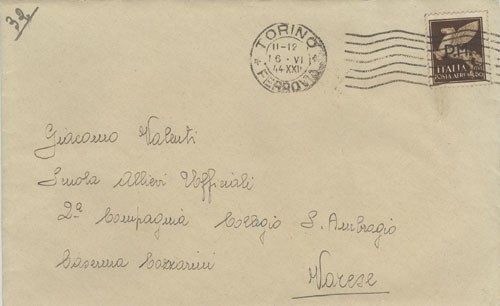 32
TORINO
11-12
16 · VI
44-XXII
FERROVIA
P.M.
ITALIA
POSTA AEREA
Giacomo Valenti
Scuola Allievi Ufficiali
2ª Compagnia Collegio S. Ambrogio
Caserma
Varese